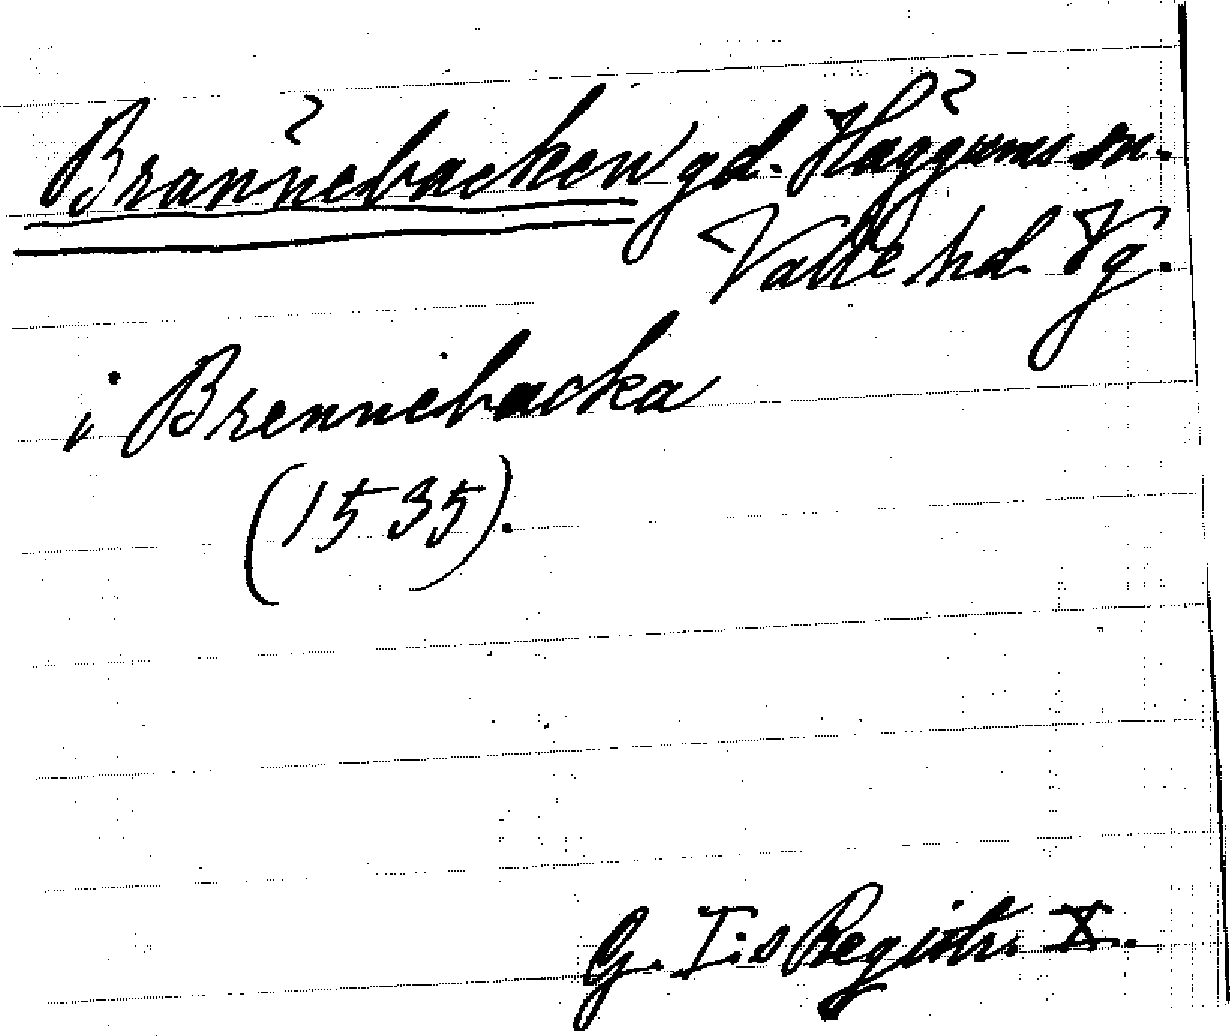 Brännebacken gd. Häggums sn.
Valle hd. Vg.
i Brennebacka
(1535).
G. I:s Registr. X.